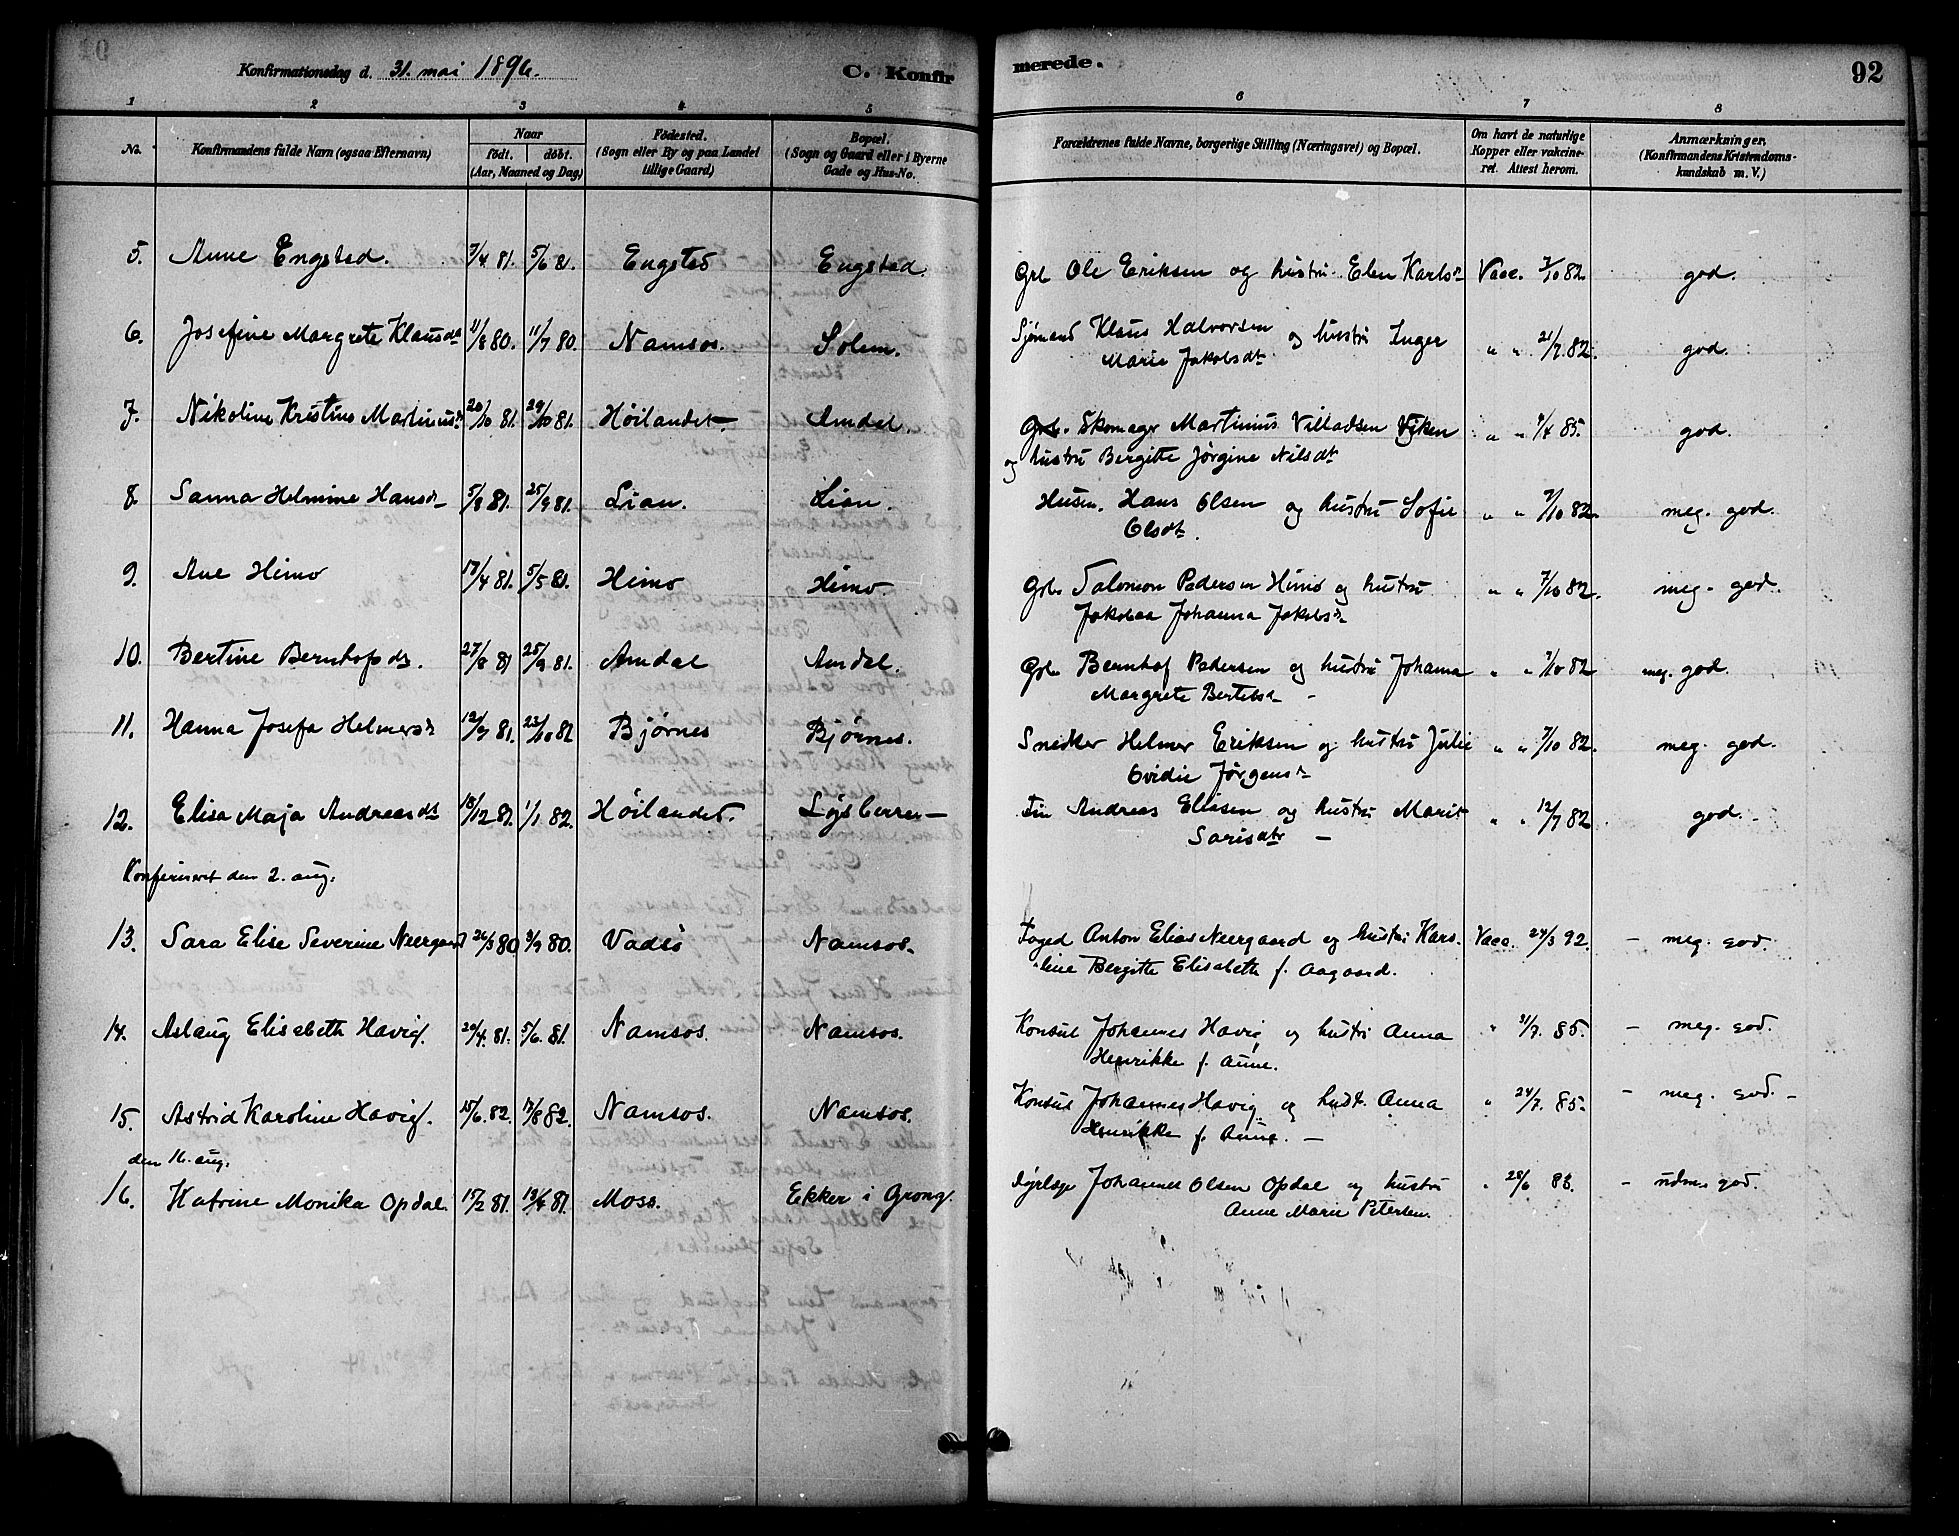 Konfirmationsdag d. 31. mai 1896.
C. Konfirmerede.
92
1 2 3 4 5 6 7 8
No.
Konfirmandens fulde Navn (ogsaa Efternavn)
Naar
født. døbt.
(Aar, Maaned og Dag)
Fødested.
(Sogn eller By og paa Landet tillige Gaard)
Bopæl.
(Sogn og Gaard eller i Byerne Gade og Hus-No.
Forældrenes fulde Navne, borgerlige Stilling (Næringsvei) og Bopæl.
Om havt de naturlige Kopper eller vakcineret. Attest herom.
Anmærkninger.
(Konfirmandens Kristendomskundskab m. V.)
5. Anne Engstad. 7/4 81. 5/6 81. Engstad Engstad. Grb. Ole Eriksen og hustru Elen Karlsdr Vacc. 7/10 82 god.
6. Josefine Margrete Klausdt 11/8 80. 11/7 80. Namsos. Solem. Sjømand Klaus Halvorsen og hustru Inger
Marie Jakobsdt. " " 21/7 82. god.
7. Nikoline Kristine Martinusdr 20/10 81. 29/10 81. Høilandet. Amdal. Skomager Martinius Villadsen Viken " " 9/4 85. god.
og hustru Bergitte Jørgine Nilsdt
8. Sanna Helmine Hansdr 5/8 81. 25/9 81. Lian. Lian. Husm. Hans Olsen og hustru Sofie
Olsdt. " " 7/10 82. meg. god.
9. Ane Himo 17/4 81. 5/5 81. Himo Himo. Grb. Salomon Pedersen Himo og hustru " " 7/10 82. meg. god.
Jakobaa Johanna Jakobsdr
10. Bertine Bernhofsdr. 27/8 81 25/9 81. Amdal Amdal. Grb. Bernhof Pedersen og hustru Johanna " " 7/10 82 meg. god.
Margrete Bertelsdr
11. Hanna Josefa Helmersdr 12/9 81. 23/10 82 Bjørnes Bjørnes. Snedker Helmer Eriksen og hustru Julie " " 7/10 82. meg. god.
Ovidie Jørgensdr
12. Elisa Maja Andreasdt 18/12 81. 1/1 82. Høilandet. Fin Andreas Eliasen og hustru Marit " " 12/7 82 god.
Sarisdtr
Konfirmeret den 2. aug.
13. Sara Elise Severine Neergaard 26/5 80 3/9 80. Vadsø Namsos. Foged Anton Elias Neergaard og hustru Karo- Vacc. 24/3 92. — meg. god.
line Bergitte Elisabeth f. Aagaard.
14. Aslaug Elisabeth Havig. 20/4. 81. 5/6. 81. Namsos. Namsos. Konsul Johannes Havig og hustru Anna " 31/7. 85. — meg. god.
Henrikke f. Aune.
15. Astrid Karoline Havig. 15/6. 82. 17/8 82. Namsos. Namsos. Konsul Johannes Havig og hustr. Anna " 24/7. 85. — meg. god. —
Henrikke f. Aune. —
den 16. aug.
16. Katrine Monika Opdal. 15/2 81. 13/4 81. Moss. Ekker i Grong. Dyrlæge Johannes Olsen Opdal og hustru " 28/6 83. — udm. god.
Anne Marie Petersen.